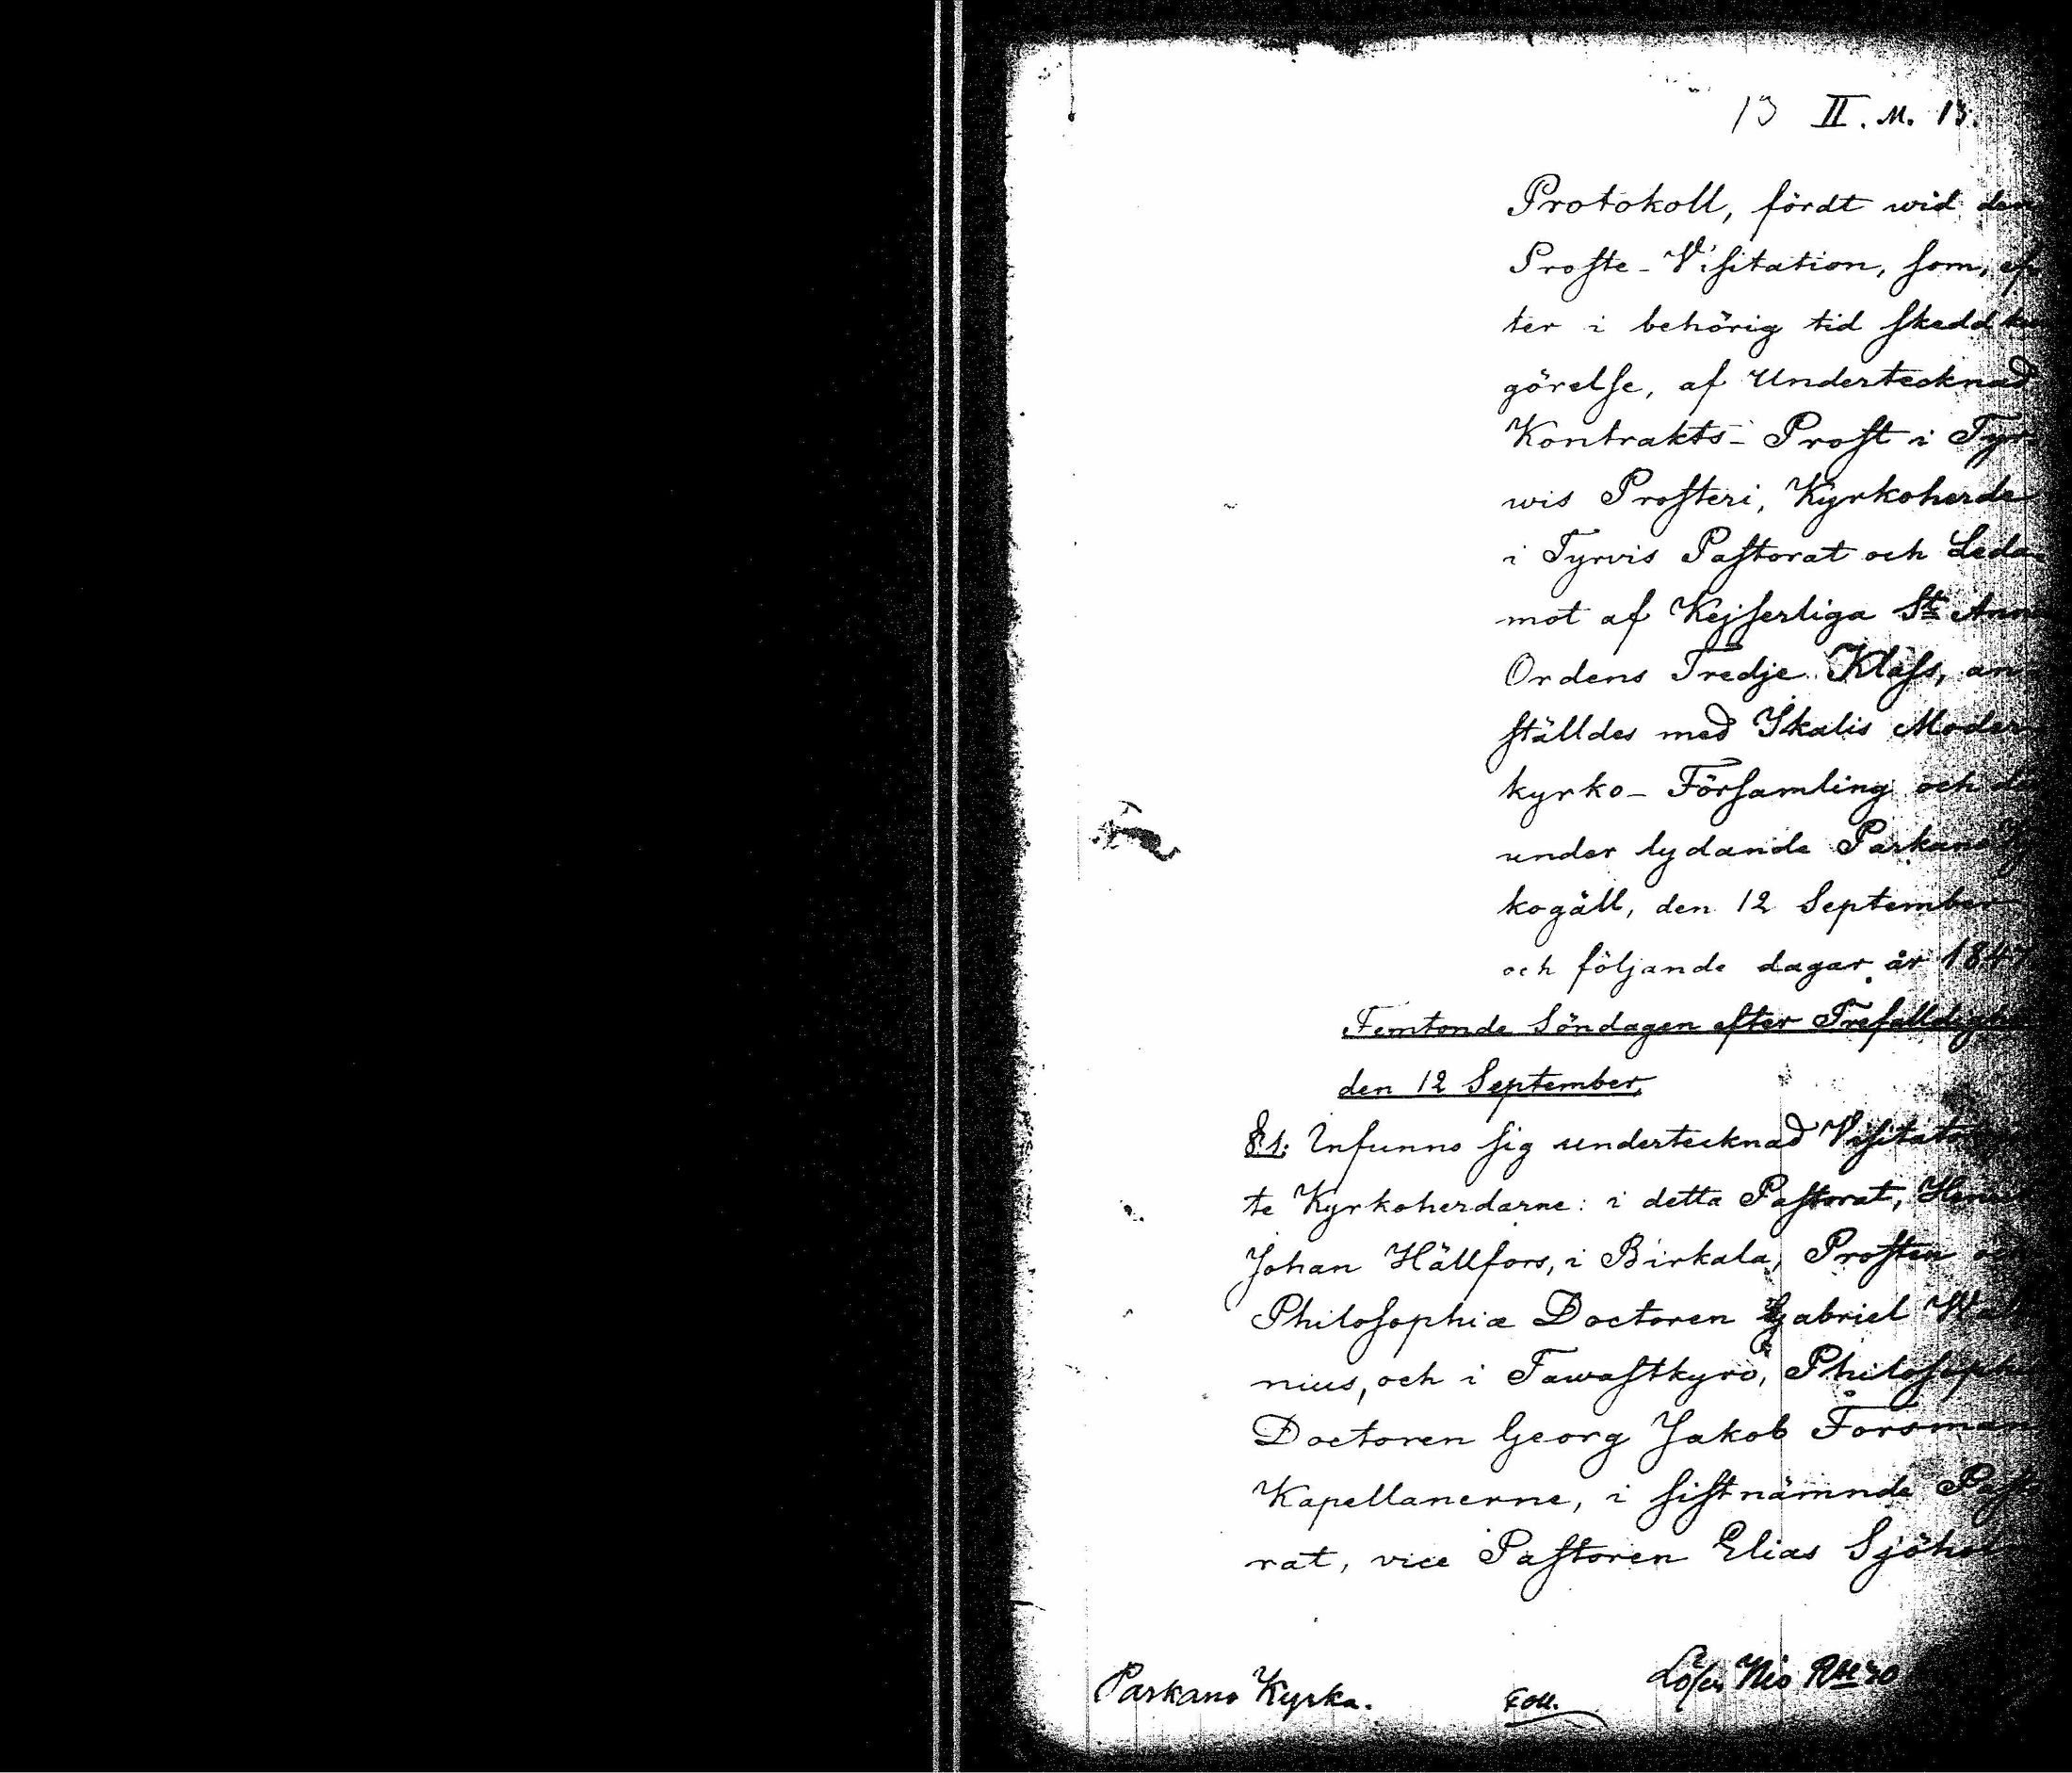 13 II. M. 13.
Protokoll, fördt wid den
Proste-Visitation, som, ef
ter i behörig tid skedd kun
görelse, af Undertecknad
Kontrakts-Prost i Tyr-
wis Prosteri, Kyrkoherde
i Tyrvis Pastorat och Leda-
mot af Kejserliga St Anna
Ordens Tredje Klass, an-
ställdes med Ikalis Moder
kyrko-Församling och
under lydande Parkano
kogäll, den 12 September
och följande dagar år 1847
Femtonde Söndagen efter Trefalldighet
den 12 September,
§ 1. Infunno sig undertecknad Visitator
te Kyrkoherdarne: i detta Pastorat, Henrik
Johan Hällfors, i Birkala, Prosten och
Philosophiæ Doctoren Gabriel
nius, och i Tawastkyro, Philosophiæ
Doctoren Georg Jakob Forsman
Kapellanerne, i sistnämnde Pasto
rat, vice Pastoren Elias
Parkano Kyrka.